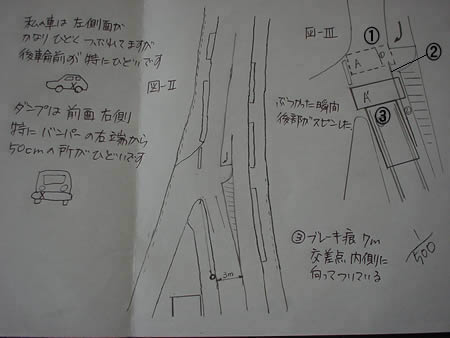 私の車は左側面が
かなりひどくつぶれてますが
後輪前が特にひどいです
ダンプは前面右側
特にバンパーの右端から
50cmの所がひどいです
図-Ⅱ
3m
図-Ⅲ
①
②
A
A'
③
ぶつかった瞬間
後部がスピンした
③ブレーキ痕7m
交差点内側に
向ってついている
1/500